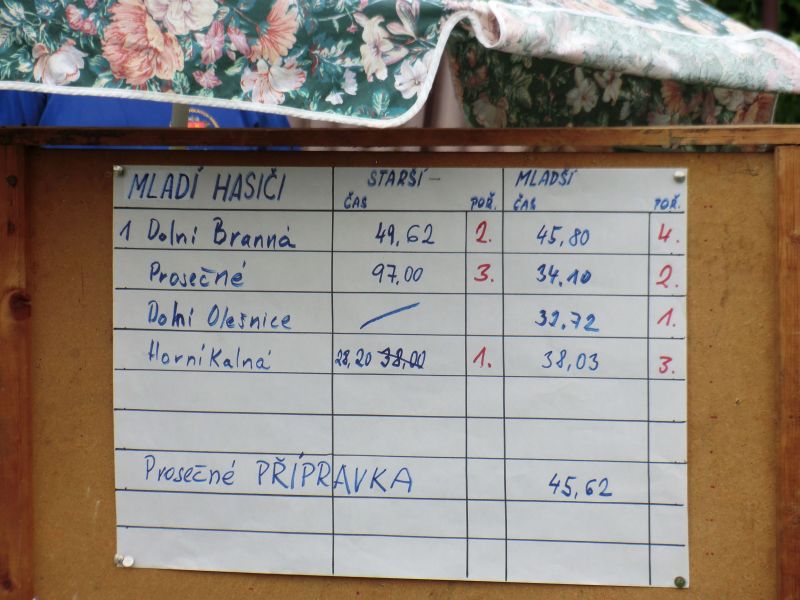 MLADÍ HASIČI STARŠÍ MLADŠÍ
ČAS POŘ. ČAS POŘ.
1 Dolní Branná 49,62 2. 45,80 4.
Prosečné 97,00 3. 34,10 2.
Dolní Olešnice / 32,72 1.
Horní Kalná 28,20 38,00 1. 38,03 3.
Prosečné PŘÍPRAVKA 45,62